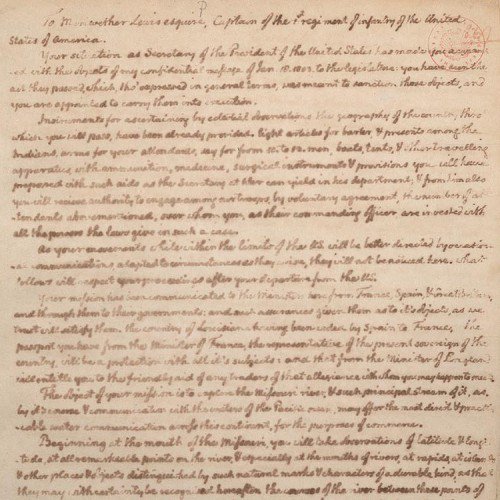 To Meriwether Lewis esquire, Captain of the 1st regiment of infantry of the United
States of America.
Your situation as Secretary of the President of the United States has made you acquaint-
-ed with the objects of my confidential message of Jan. 18. 1803. to the legislature: you have seen the
act they passed, which, tho' expressed in general terms, was meant to sanction those objects, and
you are appointed to carry them into execution.
Instruments for ascertaining by celestial observations the geography of the country, thro'
which you will pass, have been already provided. light articles for barter, & presents among the
Indians, arms for your attendants, say for from 10 to 12. men, boats, tents, & other travelling
apparatus, with ammunition, medicine, surgical instruments & provisions you will have
prepared with such aids as the Secretary at War can yield in his department; & from him also
you will receive authority to engage among our troops, by voluntary agreement, the number of at-
-tendants abovementioned, over whom you, as their commanding officer are invested with
all the powers the laws give in such a case.
As your movements while within the limits of the US. will be better directed by occasion-
-al communications, adapted to circumstances as they arise, they will not be noticed here. what
follows will respect your proceedings after your departure from the US.
Your mission has been communicated to the Ministers here from France, Spain, & Great Britain,
and through them to their governments: and such assurances given them as to it's objects, as we
trust will satisfy them. the country of Louisiana having been ceded by Spain to France, the
passport you have from the Minister of France, the representative of the present sovereign of the
country, will be a protection with all it's subjects: and that from the Minister of England
will entitle you to the friendly aid of any traders of that allegiance with whom you may happen to meet.
The object of your mission is to explore the Missouri river, & such principal stream of it, as,
by it's course & communication with the waters of the Pacific ocean, may offer the most direct & practi-
-cable water communication across this continent, for the purposes of commerce.
Beginning at the mouth of the Missouri, you will take observations of latitude & longi-
-tude, at all remarkable points on the river, & especially at the mouths of rivers, at rapids, at islands
& other places & objects distinguished by such natural marks & characters of a durable kind, as that
they may with certainty be recognised hereafter. the courses of the river between these points of